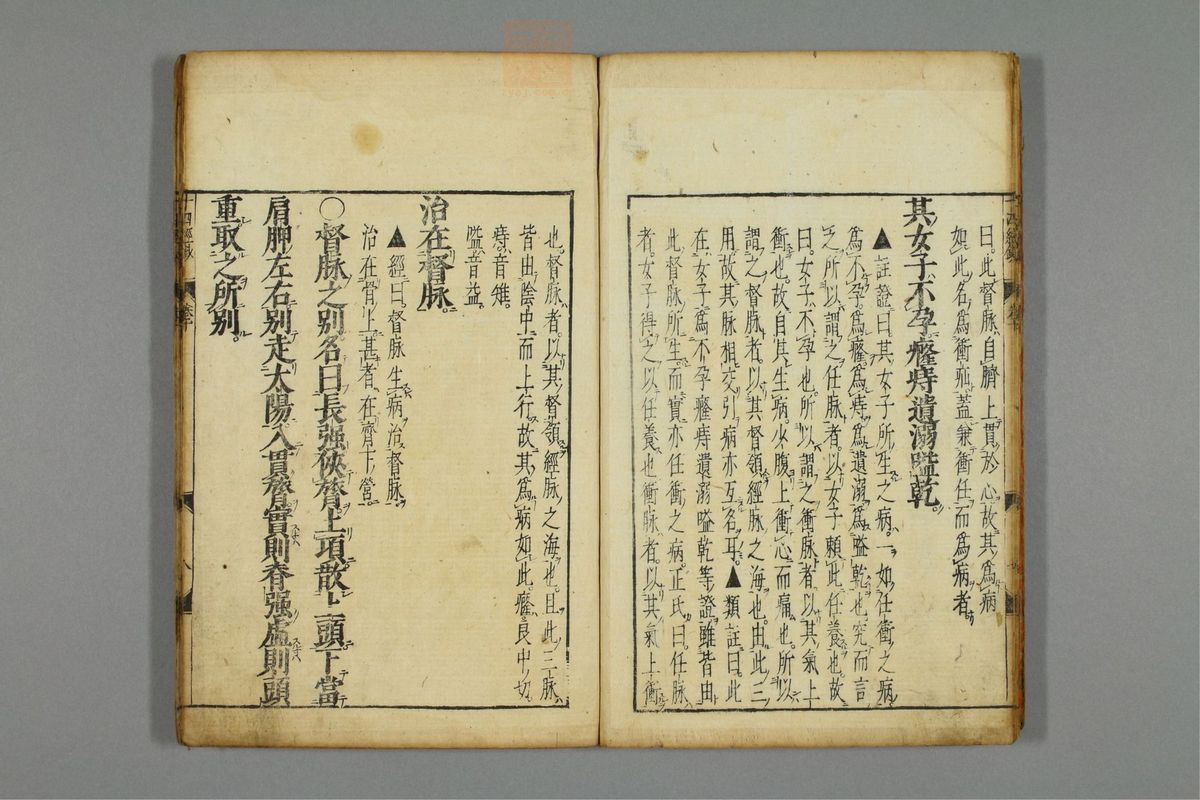 曰。此督脉自臍上貫於心故其爲病
如此名爲衝疝蓋兼衝任而爲病者
其女子不孕癃痔遺溺嗌乾。
▲註證曰。其女子所生之病。一如任衝之病
爲不孕。爲癃爲痔爲遺溺爲嗌乾也究而言
之所以謂之任脉者以女子賴此任養也故
曰女子不孕也。所以謂之衝脉者以其氣上
衝也故自其生病。少腹上衝心而痛也。所以
謂之督脉者。以其督領經脉之海也。由此三
用故其脉相交引病亦互名耳。▲類註曰。此
在女子爲不孕癃痔遺溺嗌乾等證雖皆由
此督脉所生。而實亦任衝之病。王氏曰。任脉
者。女子得之以任養也衝脉者。以其氣上衝
也。督脉者。以其督領經脉之海也。且此三脉
皆由陰中而上行。故其爲病如此癃。良中切
痔。音雉。
嗌音益。
治在督脉。
▲經曰。督脉生病治督脉。
治在骨上甚者在齊下營。
○督脉之別名曰長强俠膂上項散上頭下當
肩胛左右別走太陽入貫膂實則脊强虛則頭
重取之所別。